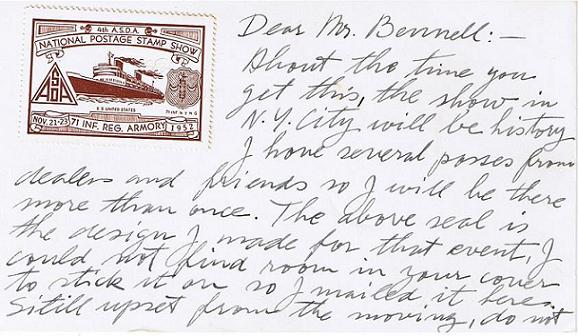 4th A.S.D.A.
NATIONAL POSTAGE STAMP SHOW
ASDA
S S UNITED STATES
NOV. 21-23 71 INF. REG. ARMORY 1952
Dear Mr. Bennell:—
About the time you
get this, the show in
N.Y. City will be history
I have several passes from
dealers and friends so I will be there
more than once. The above seal is
the design I made for that event, I
could not find room in your cover
to stick it on so I mailed it here.
Sitill upset from the moving, do not